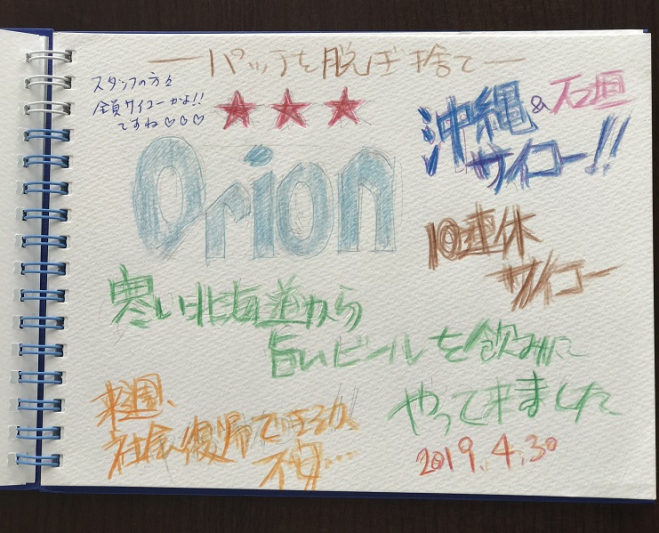 ―パッチを脱ぎ捨て―
スタッフの方々
全員サイコーかよ!!
ですね♡♡♡
★★★
沖縄&石垣
サイコー!!
Orion
10連休
サイコー
寒い北海道から
旨いビールを飲みに
やって来ました
来週、
社会復帰できるか
不安…
2019.4.30